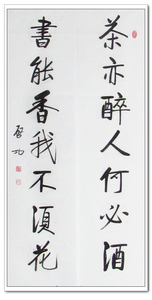 茶亦醉人何必酒
書能香我不須花
啓功